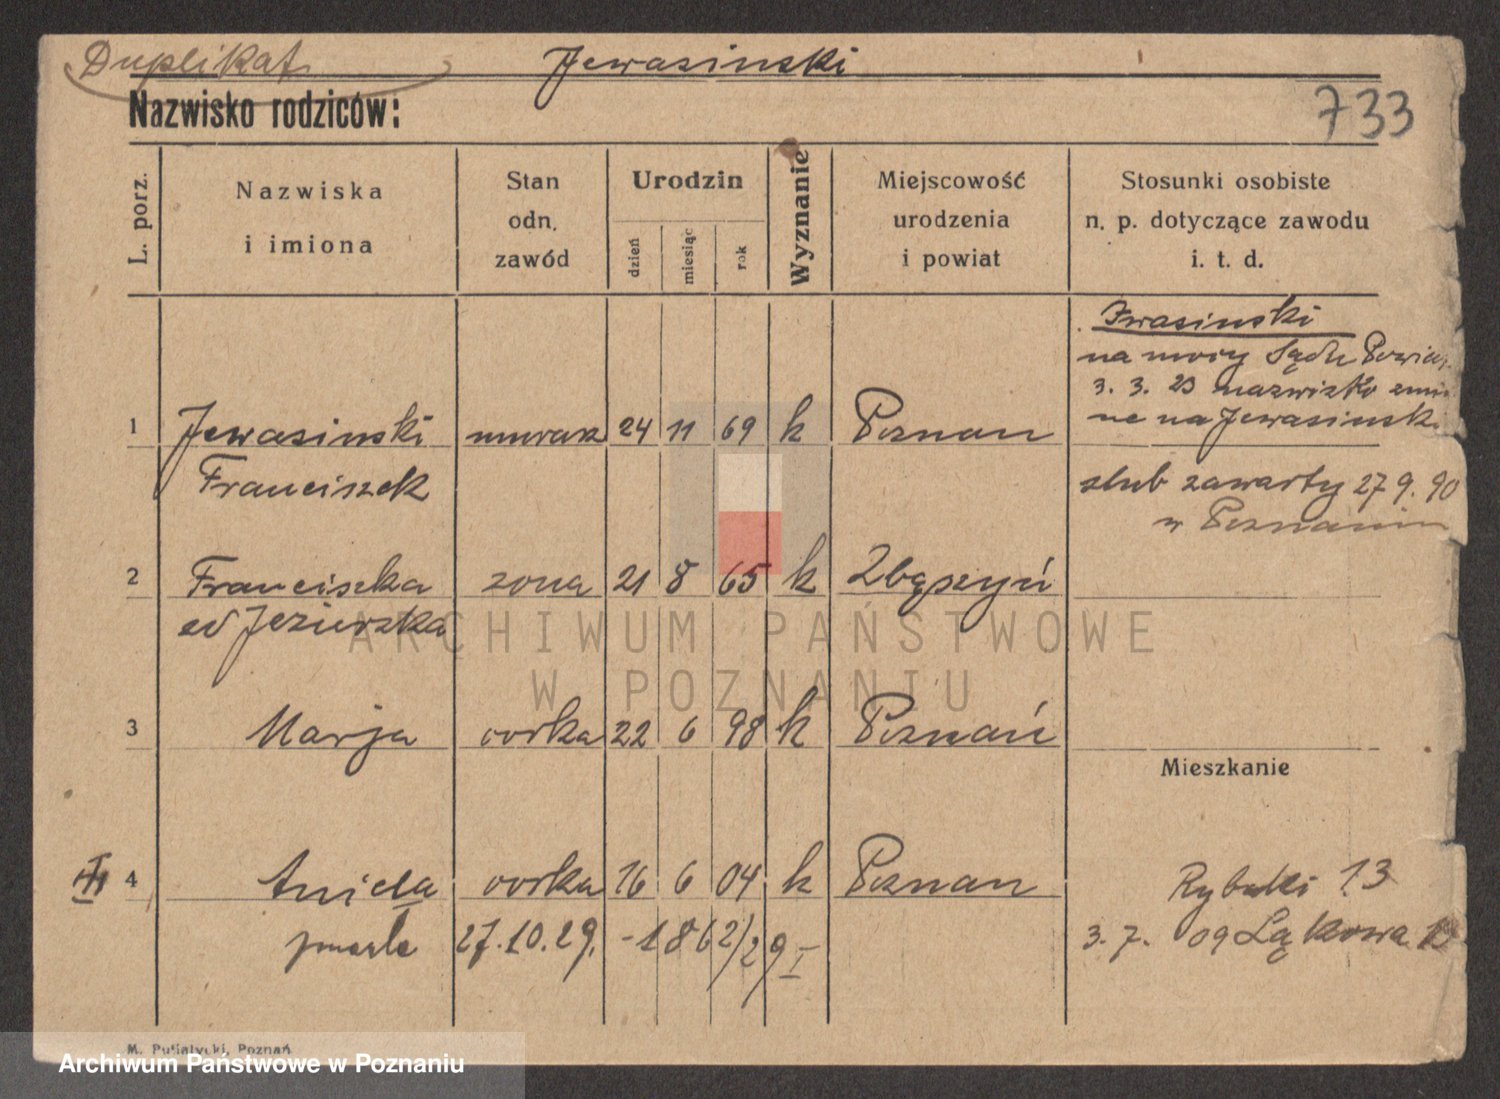 Duplikat Jewasinski
Nazwisko rodziców:
733
L. porz.
Nazwiska
i imiona
Stan
odn.
zawód
Urodzin
dzień
miesiąc
rok
Wyznanie
Miejscowość
urodzenia
i powiat
Stosunki osobiste
n. p. dotyczące zawodu
i. t. d.
Iwasinski
na mocy Sądu Powia
3. 3. 23 nazwisko zmie
ne na Jewasinsk
1 Jewasinski murarz 24 11 69 k Poznan
Franciszek
slub zawarty 27 9. 90
w Poznaniu
2 Franciszka zona 21 8 65 k Zbąszyń
od Jezierska
ARCHIWUM PAŃSTWOWE
W POZNANIU
3 Marja corka 22 6 98 k Poznań
Mieszkanie
4 Aniela corka 16 6 04 k Poznan
Rybaki 13
zmarla 27.10.29. -1862/29 I
3. 7. 09 Łąkowa
M. Putiatycki, Poznań
Archiwum Państwowe w Poznaniu